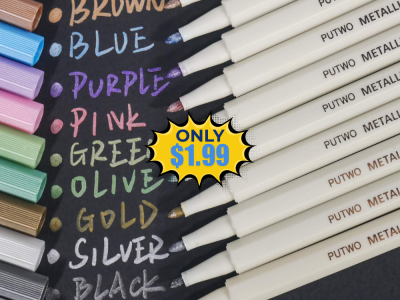 BROWN
BLUE
PURPLE
PINK
GREEN
OLIVE
GOLD
SILVER
BLACK
ONLY
$1.99
PUTWO METALLI
PUTWO METALLI
PUTWO METALLI
PUTWO METALLI
PUTWO METALLI
PUTWO METALL
PUTWO METAL
PUTWO METAL